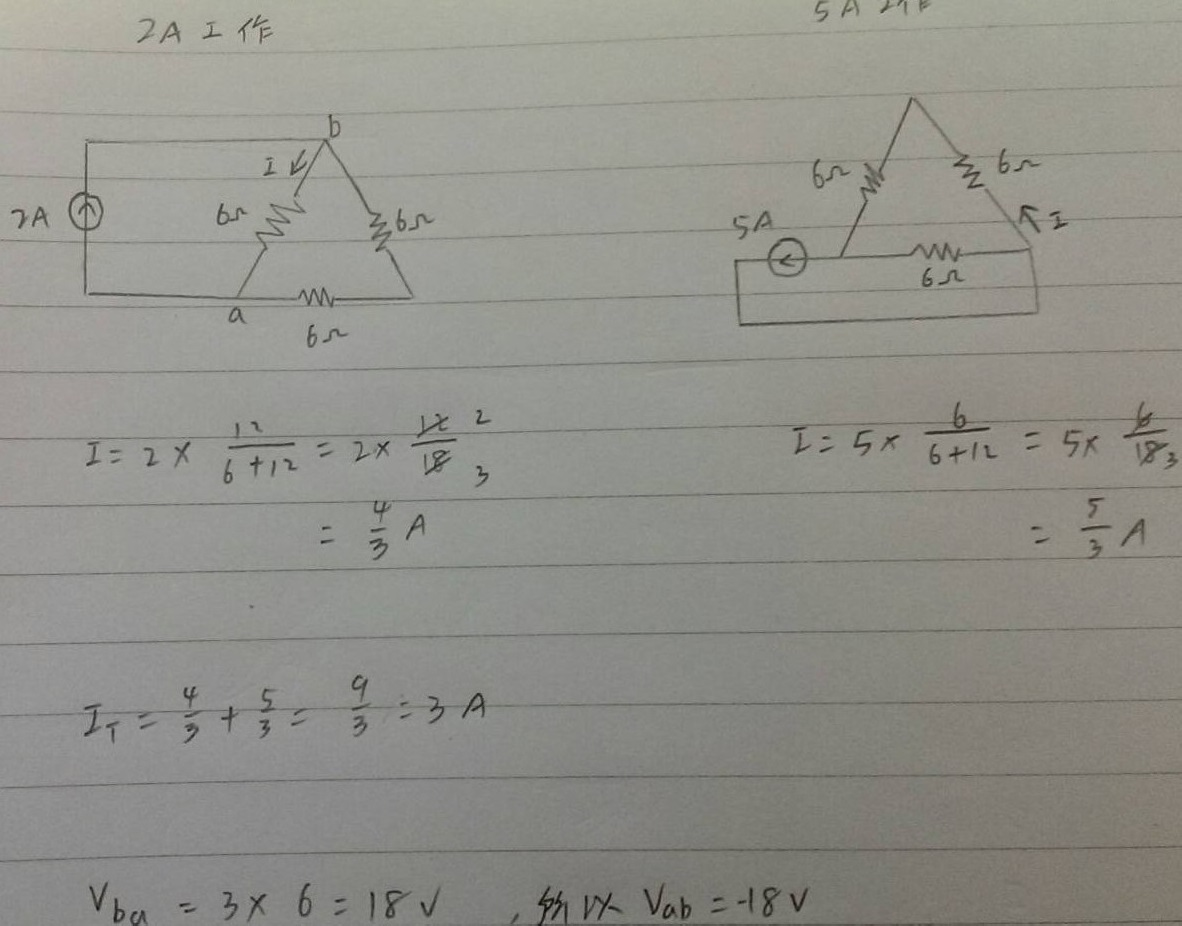 2A 工作
5A 工作
b
I
2A
6Ω
6Ω
a
6Ω
6Ω
6Ω
5A
I
6Ω
I = 2 × 12/(6+12) = 2 × 12/18 2 3
= 4/3 A
I = 5 × 6/(6+12) = 5 × 6/18 3
= 5/3 A
I_T = 4/3 + 5/3 = 9/3 = 3 A
V_ba = 3 × 6 = 18 V , 所以 V_ab = -18 V